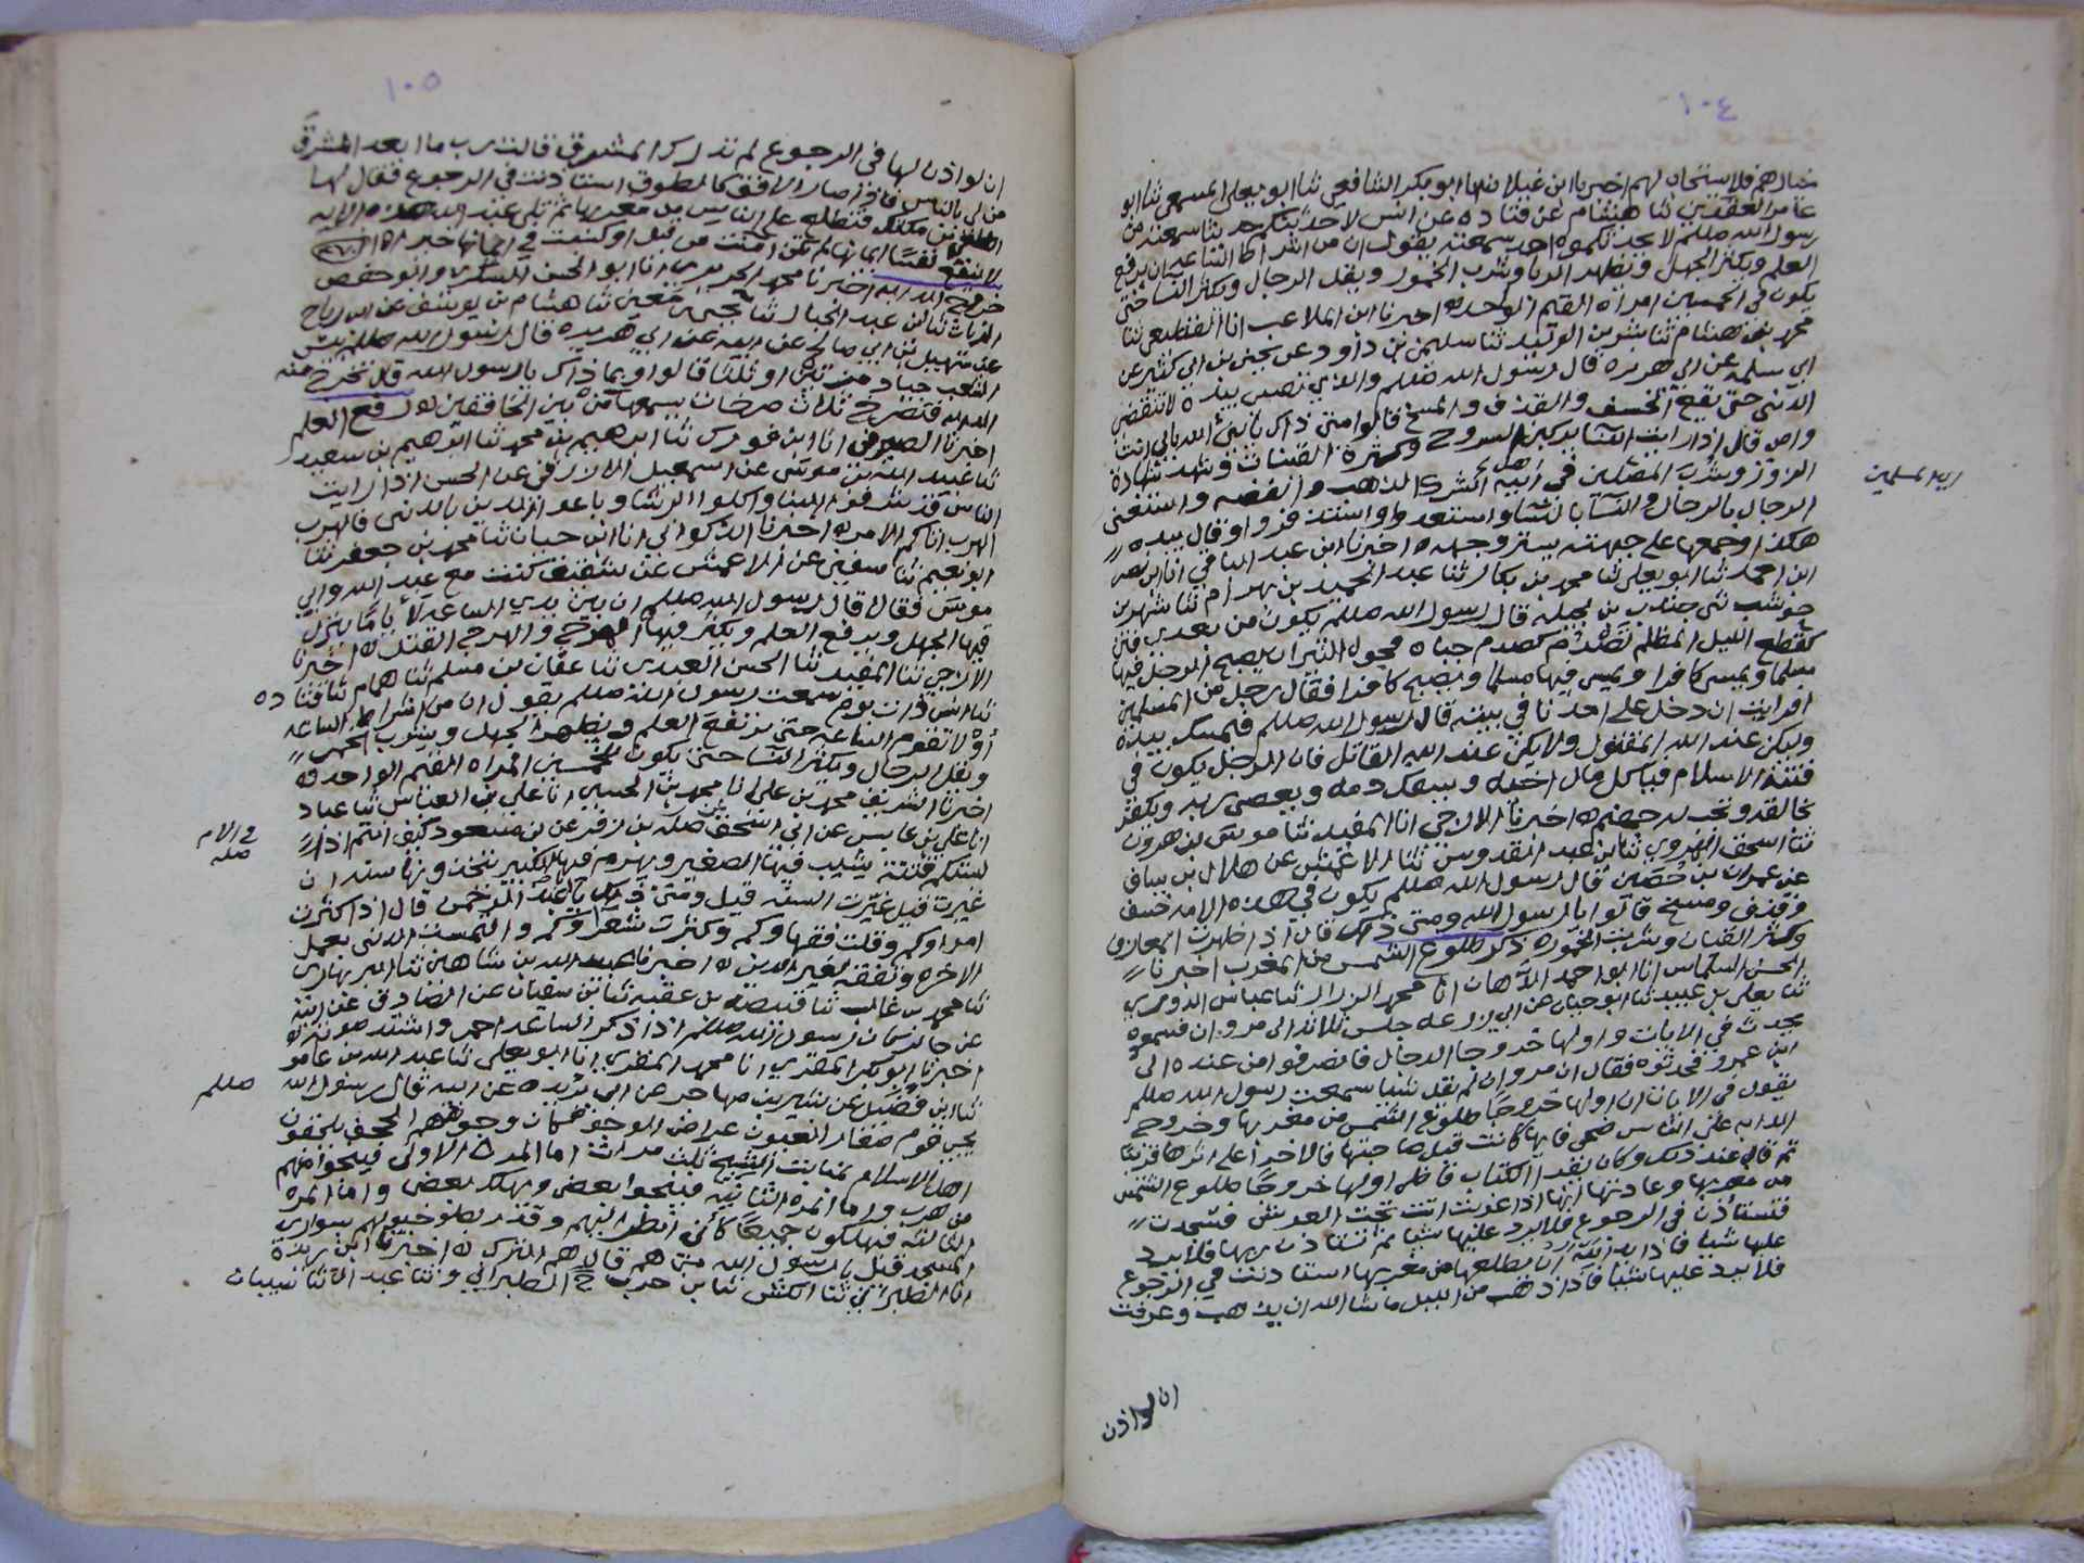 ١٠٤
خيارهم فلا يستجاب لهم اخبرنا ابن غيلان انا ابو بكر الشافعي ثنا ابو يعلى المسمعي ثنا ابو
عامر العقدي ثنا هشام عن قتاده عن انس لاحدثنكم حديثا سمعته من
رسول الله صللم لا يحدثكموه احد سمعته يقول ان من اشراط الساعه ان يرفع
العلم ويكثر الجهل ويظهر الزنا وشرب الخمور ويقل الرجال ويكثر النسا حتى
يكون في الخمسين امراه القيم الواحد ه اخبرنا ابن الملاعب انا القطيعي ثنا
محمد بن هشام ثنا بشر بن الوليد ثنا سليمن بن داود عن يحيى بن ابي كثير عن
ابي سلمه عن ابي هريره قال رسول الله صللم والذي نفسي بيده لا تنقضي
الدنيى حتى يقع الخسف والقذف والمسخ قالوا متى ذاك يا نبي الله بابي انت
وامي قال اذا رايت النسا يركبن السروج وكثرة القينات وشهد شهادة
الزور وشرب المصلين في انيه اهل الشرك الذهب والفضه واستغنى
اريد المسلمين
الرجال بالرجال والنسآ بالنسا واستعدوا واستنفزوا وقال بيده
هكذا وجمعها على جبهته يستر وجهه ه اخبرنا ابن عبد الباقي انا ابن نصر
ابن احمد ثنا ابو يعلى ثنا محمد بن بكار ثنا عبد الحميد بن بهرام ثنا شهر بن
حوشب ثنى جندب بن بجيله قال رسول الله صللم يكون من بعدي فتن
كقطع الليل المظلم تصدم كصدم جباه فحول الثيران يصبح الرجل فيها
مسلما ويمسي كافرا ويمسي فيها مسلما ويصبح كافرا فقال رجل من المسلمين
افرايت ان دخل على احدنا في بيته قال رسول الله صللم فليمسك بيده
وليكن عند الله المقتول ولا يكن عند الله القاتل فان الرجل يكون في
فتنة الاسلام فياكل مال اخيه ويسفك دمه ويعصي ربه ويكفر
بخالقه وتجب له جهنم ه اخبرنا الازجي انا المفيد ثنا موسى بن هرون
ثنا اسحق الهروي ثنا بن عبد القدوس ثنا الاعمش عن هلال بن يساف
عن عمران بن حصين قال رسول الله صللم يكون في هذه الامه خسف
وقذف ومسخ قالوا يا رسول الله ومتى ذلك قال اذا ظهرت المعازف
وكثر القينات وشربت الخمور ه ذكر طلوع الشمس من المغرب اخبرنا
الحسن السلماس انا ابو احمد الدهان انا محمد البزار ثنا عباس الدوري
ثنا يعلى بن عبيد ثنا ابو حيان عن ابي زرعه جلس ثلاثه الى مروان فسمعوه
يحدث في الايات واولها خروجا الدجال فانصرفوا من عنده الى
ابن عمرو فحدثوه فقال ان مروان لم يقل شيا سمعت رسول الله صللم
يقول في الايات ان اولها خروجا طلوع الشمس من مغربها وخروج
الدابه على الناس ضحى فايها كانت قبل صاحبتها فالاخرا على اثرها قريبا
ثم قال عند ذلك وكان يقرا الكتاب فاظن اولها خروجا طلوع الشمس
من مغربها وعادتها انها اذا غربت اتت تحت العرش فتسجدت
فتستاذن في الرجوع فلا يرد عليها شيا ثم تستاذن ربها فلا يرد
عليها شيا فاذا اراد الله ان يطلعها من مغربها استاذنت في الرجوع
فلا يرد عليها شيا فاذا ذهب من الليل ما شا الله ان يذهب وعرفت
ان لو اذن
١٠٥
ان لو اذن لها في الرجوع لم تدرك المشرق قالت رب ما ابعد المشرق
من لي بالناس فاذا صار الافق كالطوق استاذنت في الرجوع فقال لها
اطلعي من مكانك فتطلع على الناس من مغربها ثم تلى عبد الله هذه الايه
لا ينفع نفسا ايمانها لم تكن امنت من قبل او كسبت في ايمانها خيرا ه
خروج الدابه اخبرنا محمد الحريري انا ابو الحسن السكري وابو حفص
الزيات ثنا ابن عبد الجبار ثنا يحيى بن معين ثنا هشام بن يوسف عن ابن رباح
عن سهيل بن ابي صالح عن ابيه عن ابي هريره قال رسول الله صللم بئس
الشعب جياد مرتين او ثلثا قالوا وبما ذاك يا رسول الله قال تخرج منه
الدابه فتصرخ ثلاث صرخات يسمعها من بين الخافقين ه رفع العلم
اخبرنا الصيرفي انا ابن فورك ثنا ابرهيم بن محمد ثنا ابرهيم بن سعيد
ثنا عبيد الله بن موسى عن اسمعيل الازرق عن الحسن اذا رايت
الناس قد شرفوا البنا واكلوا الرشا وباعوا الدين بالدنيى فالهرب
الهرب اتاكم الامر ه اخبرنا الذكواني انا ابن حيان ثنا محمد بن جعفر ثنا
ابو نعيم ثنا سفين عن الاعمش عن شقيق كنت مع عبد الله وابي
موسى فقالا قال رسول الله صللم ان بين يدي الساعه لاياما ينزل
فيها الجهل ويرفع العلم ويكثر فيها الهرج والهرج القتل ه اخبرنا
الازجي ثنا المفيد ثنا الحسن العبدي ثنا عفان بن مسلم ثنا همام ثنا قتاده
ثنا انس ذات يوم سمعت رسول الله صللم يقول ان من اشراط الساعه
او لا تقوم الساعه حتى يرتفع العلم ويظهر الجهل ويشرب الخمر
ويقل الرجال ويكثر النسا حتى يكون لخمسين امراه القيم الواحد ه
اخبرنا الشريف محمد بن علي انا محمد بن الحسين انا علي بن العباس ثنا عباد
انا علي بن عابس عن ابي اسحق عن صله بن زفر عن بن مسعود كيف انتم اذا
لبستكم فتنة يشيب فيها الصغير ويهرم فيها الكبير تتخذونها سنه ان
غيرت قيل غيرت السنه قيل ومتى ذلك يا ابا عبد الرحمن قال اذا كثرت
امراوكم وقلت فقهاوكم وكثرت شعراوكم والتمست الدنيى بعمل
الاخره وتفقه لغير الدين ه اخبرنا عبد الله بن شاهين ثنا البربهاري
ثنا محمد بن غالب ثنا قبيصه بن عقبه ثنا بن سفيان عن الصادق عن ابيه
عن جابر كان رسول الله صللم اذا ذكر الساعه احمر واشتد صوته ه
اخبرنا ابو بكر المقري انا محمد المقري انا ابو يعلى ثنا عبد الله بن عامر
ثنا ابن فضيل عن بشير بن مهاجر عن ابي بريده عن ابيه قال رسول الله
صللم
يجي قوم صغار العيون عراض الوجوه كان وجوههم الحجف يلحقون
اهل الاسلام بمنابت الشيح ثلث مرات اما المره الاولى فينجوا منهم
من هرب واما المره الثانيه فينجوا بعض ويهلك بعض واما المره
الثالثه فيهلكون جميعا كاني انظر اليهم وقد ربطوا خيولهم بسواري
المسجد قيل يا رسول الله من هم قال هم الترك ه اخبرنا ابن ريذة
انا الطبراني ثنا الكشي ثنا بن حرب ح الطبراني وثنا عبد الله ثنا شيبان